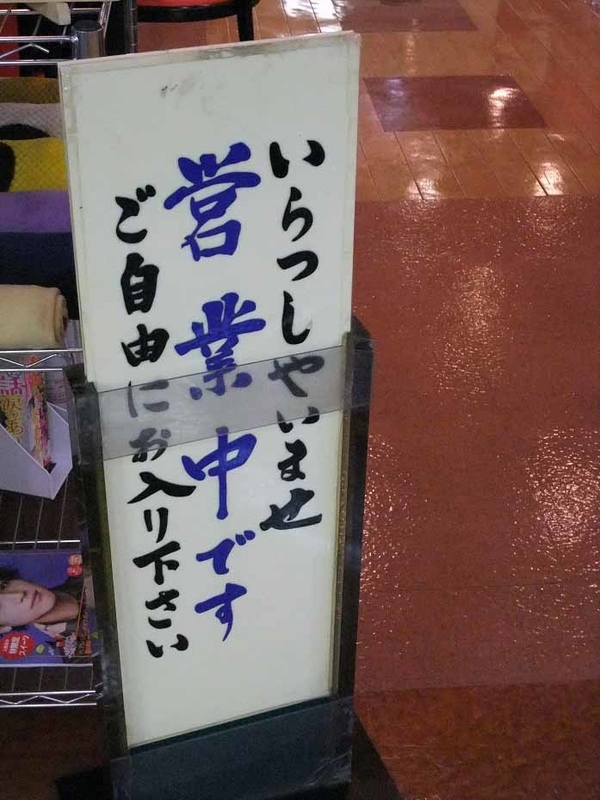 いらっしゃいませ
営業中です
ご自由にお入り下さい